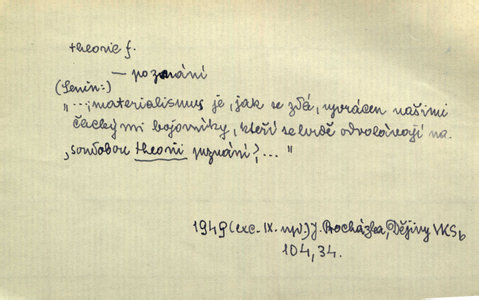 theorie f.
— poznání
(Lenin:)
"...,materialismus je, jak se zdá, vyvrácen našimi
čackými bojovníky, kteří se hrdě odvolávají na
„soudobou theorii poznání“,..."
1949 (exc. IX. vyd.) J. Procházka, Dějiny VKSb
104, 34.